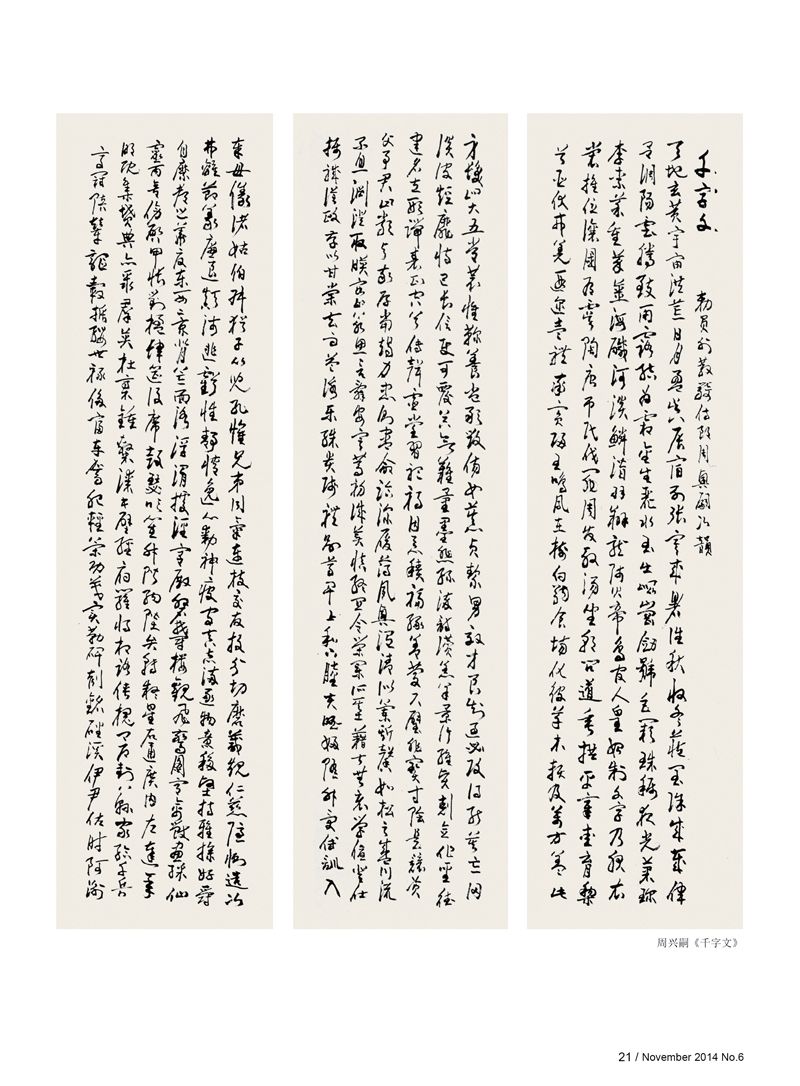 千字文
勅員外散騎侍郎周興嗣次韻
天地玄黃宇宙洪荒日月盈昃辰宿列張寒來暑往秋收冬藏閏餘成歲律
呂調陽雲騰致雨露結為霜金生麗水玉出崑岡劍號巨闕珠稱夜光菓珍
李柰菜重芥薑海鹹河淡鱗潛羽翔龍師火帝鳥官人皇始制文字乃服衣
裳推位讓國有虞陶唐弔民伐罪周發殷湯坐朝問道垂拱平章愛育黎
首臣伏戎羌遐邇壹體率賓歸王鳴鳳在樹白駒食場化被草木賴及萬方蓋此
身髮四大五常恭惟鞠養豈敢毀傷女慕貞絜男效才良知過必改得能莫忘罔
談彼短靡恃己長信使可覆器欲難量墨悲絲染詩讚羔羊景行維賢剋念作聖德
建名立形端表正空谷傳聲虛堂習聽禍因惡積福緣善慶尺璧非寶寸陰是競資
父事君曰嚴與敬孝當竭力忠則盡命臨深履薄夙興溫凊似蘭斯馨如松之盛川流
不息淵澄取映容止若思言辭安定篤初誠美慎終宜令榮業所基藉甚無竟學優登仕
攝職從政存以甘棠去而益詠樂殊貴賤禮別尊卑上和下睦夫唱婦隨外受傅訓入
奉母儀諸姑伯叔猶子比兒孔懷兄弟同氣連枝交友投分切磨箴規仁慈隱惻造次
弗離節義廉退顛沛匪虧性靜情逸心動神疲守真志滿逐物意移堅持雅操好爵
自縻都邑華夏東西二京背芒面洛浮渭據涇宮殿盤鬱樓觀飛驚圖寫禽獸畫綵仙
靈丙舍傍啟甲帳對楹肆筵設席鼓瑟吹笙升階納陛弁轉疑星右通廣內左達承
明既集墳典亦聚群英杜稾鍾隸漆書壁經府羅將相路俠槐卿戶封八縣家給千兵
高冠陪輦驅轂振纓世祿侈富車駕肥輕策功茂實勒碑刻銘磻溪伊尹佐時阿衡
周兴嗣《千字文》
21 / November 2014 No.6